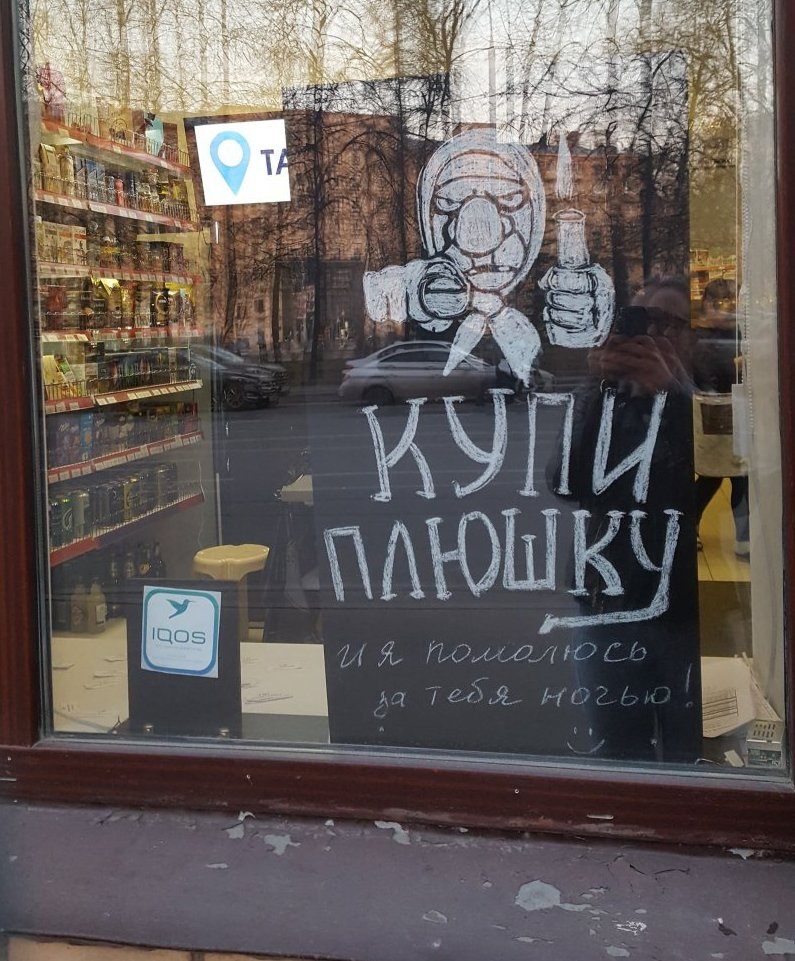 ТА
КУПИ
ПЛЮШКУ
и я помолюсь
за тебя ночью!
IQOS